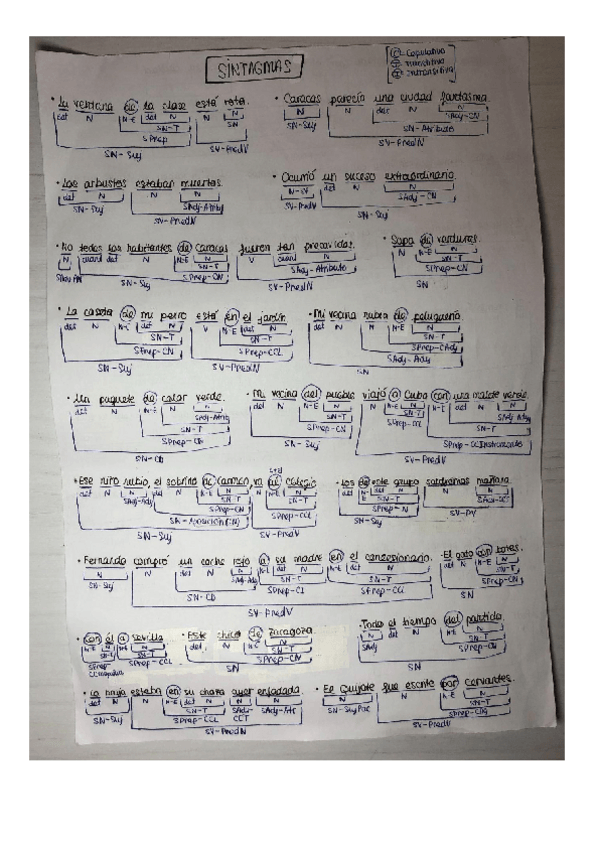 SINTAGMAS
C- Copulativo
T- Transitivo
I- Intransitivo
• La ventana de la clase está rota.
det N N-E det N N N
SN-T SN
SPrep
SN-Suj SV-PredN
• Caracas parecía una ciudad fantasma.
N N det N N
SN-Suj SAdj-CN
SN-Atributo
SV-PredN
• Los arbustos estaban muertos.
det N N N
SN-Suj SAdj-Atrib
SV-PredN
• Ocurrió un suceso extraordinario.
det N N
SV-PredV SAdj-CN
SN-Suj
• No todos los habitantes de Caracas fueron tan precavidos.
N cuant det N N-E N V cuant N
SN-T
SPrep-CN SAdj-Atributo
SN-Suj SV-PredN
• Sopa de verduras.
N N-E N
SN-T
SPrep-CN
SN
• La caseta de mi perro está en el jardín.
det N N-E det N V N-E det N
SN-T SN-T
SPrep-CN SPrep-CCL
SN-Suj SV-PredN
• Mi vecina rubia de peluquería.
det N N N-E N
SN-T
SPrep-CAdj
SAdj-Ady
SN
• Un paquete de color verde.
det N N-E N N
SAdj-Adj
SN-T
SPrep-CN
• Mi vecina del pueblo viajó a Cuba con una maleta verde.
det N N-E N N N-E N N-E det N N
SN-T SN-T SAdj-Adj
SPrep-CN SPrep-CCL SN-T
SN-Suj SPrep-CCInstrumento
SV-PredV
• Ese niño rubio, el sobrino de Carmen, va al colegio
det N N det N N-E N N N-E N
SAdj-Adj SN-T SN-T
SPrep-CN SPrep-CCL
SN-Aposición(CN)
SN-Suj SV-PredV
• Los de este grupo saldremos mañana.
SN-T
SPrep-N
SN-Suj SV-PV
• Fernando compró un coche rojo a su madre en el concesionario.
N N det N N N-E det N N-E det N
SN-Suj SAdj-Adj SN-T SN-T
SN-CD SPrep-CI SPrep-CCL
SV-PredV
• El gato con botas.
det N N-E N
SN-T
SPrep-CN
SN
• Con él a Sevilla
N-E N N-E N
SN-T SN-T
SPrep SPrep-CCL
• Este chico de Zaragoza.
det N N-E N
SN-T
SPrep-CN
SN
• Todo el tiempo del partido.
N det N N-E N
SAdj SN-T
SPrep-CN
SN
• La bruja estaba en su choza ayer enfadada.
det N N N-E det N N N
SN-Suj SN-T SAdv-CCT SAdj-Atr
SPrep-CCL
SV-PredN
• El Quijote fue escrito por Cervantes.
det N N N-E N
SN-SujPac SN-T
SPrep-CAg
SV-PredV